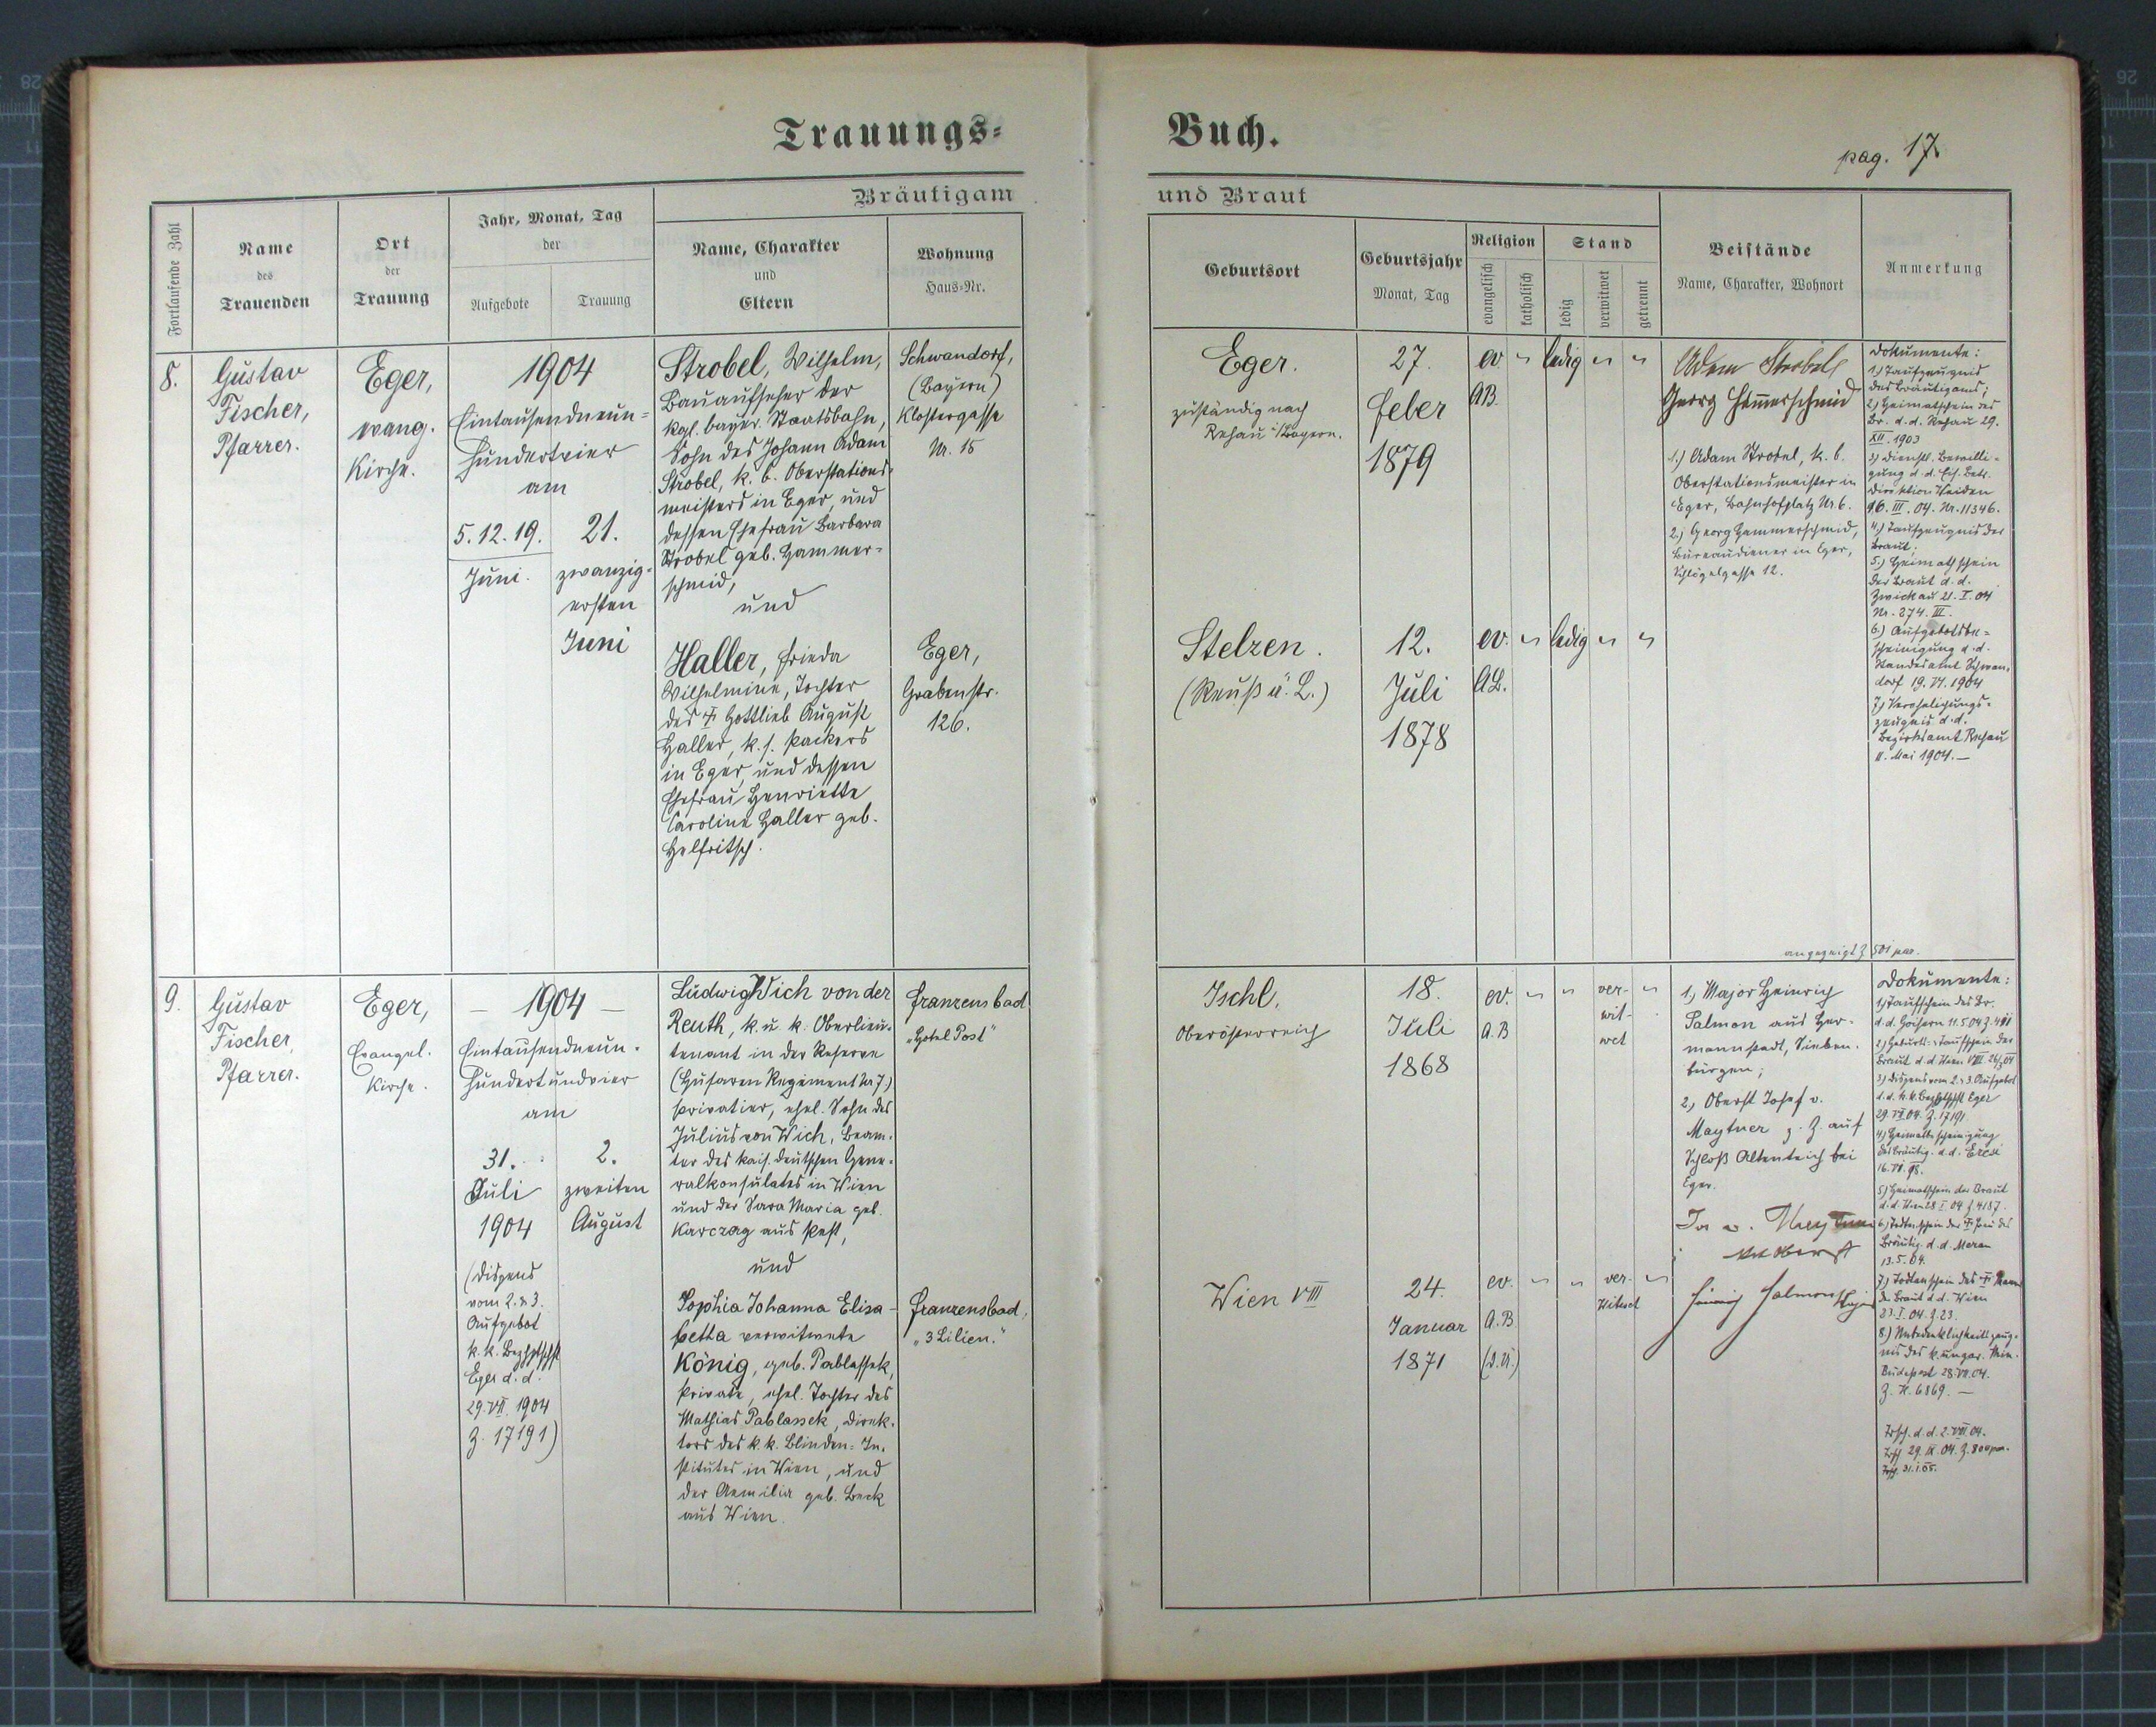 Trauungs=
Buch.
pag. 17.
Bräutigam
und Braut
Fortlaufende Zahl
Name
des
Trauenden
Ort
der
Trauung
Jahr, Monat, Tag
der
Aufgebote
Trauung
Name, Charakter
und
Eltern
Wohnung
Haus=Nr.
Geburtsort
Geburtsjahr
Monat, Tag
Religion
evangelisch
katholisch
Stand
ledig
verwitwet
getrennt
Beistände
Name, Charakter, Wohnort
Anmerkung
8.
Gustav
Fischer,
Pfarrer.
Eger,
evang.
Kirche.
1904
Eintausendneun=
hundertvier
am
5. 12. 19.
Juni.
21.
zwanzig-
ersten
Juni
Strobel, Wilhelm,
Bauaufseher der
kgl. bayer. Staatsbahn,
Sohn des Johann Adam
Strobel, k. b. Oberstations-
meisters in Eger, und
dessen Ehefrau Barbara
Strobel geb. Hammer=
schmid,
und
Haller, Frieda
Wilhelmine, Tochter
des † Gottlieb August
Haller, k. s. Packers
in Eger, und dessen
Ehefrau Henriette
Caroline Haller geb.
Helfritsch.
Schwandorf,
(Bayern)
Klostergasse
Nr. 15
Eger,
Grabenstr.
126.
Eger.
zuständig nach
Rehau i/Bayern.
27.
Feber
1879
ev. " ledig " "
AB.
Stelzen.
(Reuß ä. L.)
12.
Juli
1878
ev. " ledig " "
AB.
Adam Strobel
Georg Hammerschmid
1.) Adam Strobel, k. b.
Oberstationsmeister in
Eger, Bahnhofplatz Nr. 6.
2.) Georg Hammerschmid,
Bureaudiener in Eger,
Schlögelgasse 12.
Dokumente:
1.) Taufzeugnis
des Bräutigams;
2.) Heimatschein des
Br. d. d. Rehau 29.
XII. 1903
3.) Dienstl. Bewilli=
gung d. d. Eis. Betr.
Direktion Weiden
16. III. 04. Nr. 11346.
4.) Taufzeugnis der
Braut;
5.) Heimathschein
der Braut d. d.
Zwickau 21. I. 04
Nr. 274. III.
6.) Aufgebotsbe=
scheinigung d. d.
Standesamt Schwan-
dorf 19. VI. 1904
7.) Verehelichungs=
zeugnis d. d.
Bezirksamt Rehau
11. Mai 1904. —
angezeigt Z. 501
9.
Gustav
Fischer,
Pfarrer.
Eger,
Evangel.
Kirche.
— 1904 —
Eintausendneun-
hundertundvier
am
31.
Juli
1904
2.
zweiten
August
(Dispens
vom 2. & 3.
Aufgebot
k. k. Bezhptschft
Eger d. d.
29. VII. 1904
Z. 17191)
Ludwig Wich von der
Reuth, k. u. k. Oberlieu-
tenant in der Reserve
(Husaren Regiment Nr 7.)
Privatier, ehel. Sohn des
Julius von Wich, Beam-
ter des kais. deutschen Gene-
ralkonsulates in Wien
und der Sara Maria geb.
Karczag aus Pest,
und
Sophia Johanna Elisa-
betha verwitwete
König, geb. Pablassek,
Private, ehel. Tochter des
Mathias Pablassek, Direk-
tors des k. k. Blinden=In-
stitutes in Wien, und
der Aemilia geb. Beck
aus Wien.
Franzensbad
"Hotel Post"
Franzensbad,
"3 Lilien."
Ischl.
Oberösterreich
18.
Juli
1868
ev. " " ver- "
wit-
wet
A.B
Wien VIII
24.
Januar
1871
ev. " " ver- "
witwet
A.B
1.) Major Heinrich
Salmen aus Her-
mannstadt, Sieben-
bürgen;
2.) Oberst Josef v.
Maytner z. Z. auf
Schloß Altenteich bei
Eger.
Dokumente:
1.) Taufschein des Br.
d. d. Goisern 11. 5. 04
2.) Geburts- u. Taufschein der
Braut d. d. Wien VIII.
3.) Dispens vom 2. u. 3. Aufgebot
d. d. k. k. Bezhptschft Eger
29. VII. 04. Z. 17191
4.) Heimatbescheinigung
des Bräutig. d. d. Ercsi
5.) Heimatschein der Braut
d. d. Wien 28. I. 04 Z. 4187.
6.) Todtenschein der † Frau des
Bräutig. d. d. Meran
13. 5. 04.
7.) Todtenschein des † Mannes
der Braut d. d. Wien
23. I. 04. Z. 23.
8.) Unbedenklichkeitszeug-
nis des k. ungar. Min.
Budapest 28. VII. 04.
Z. 6869. —